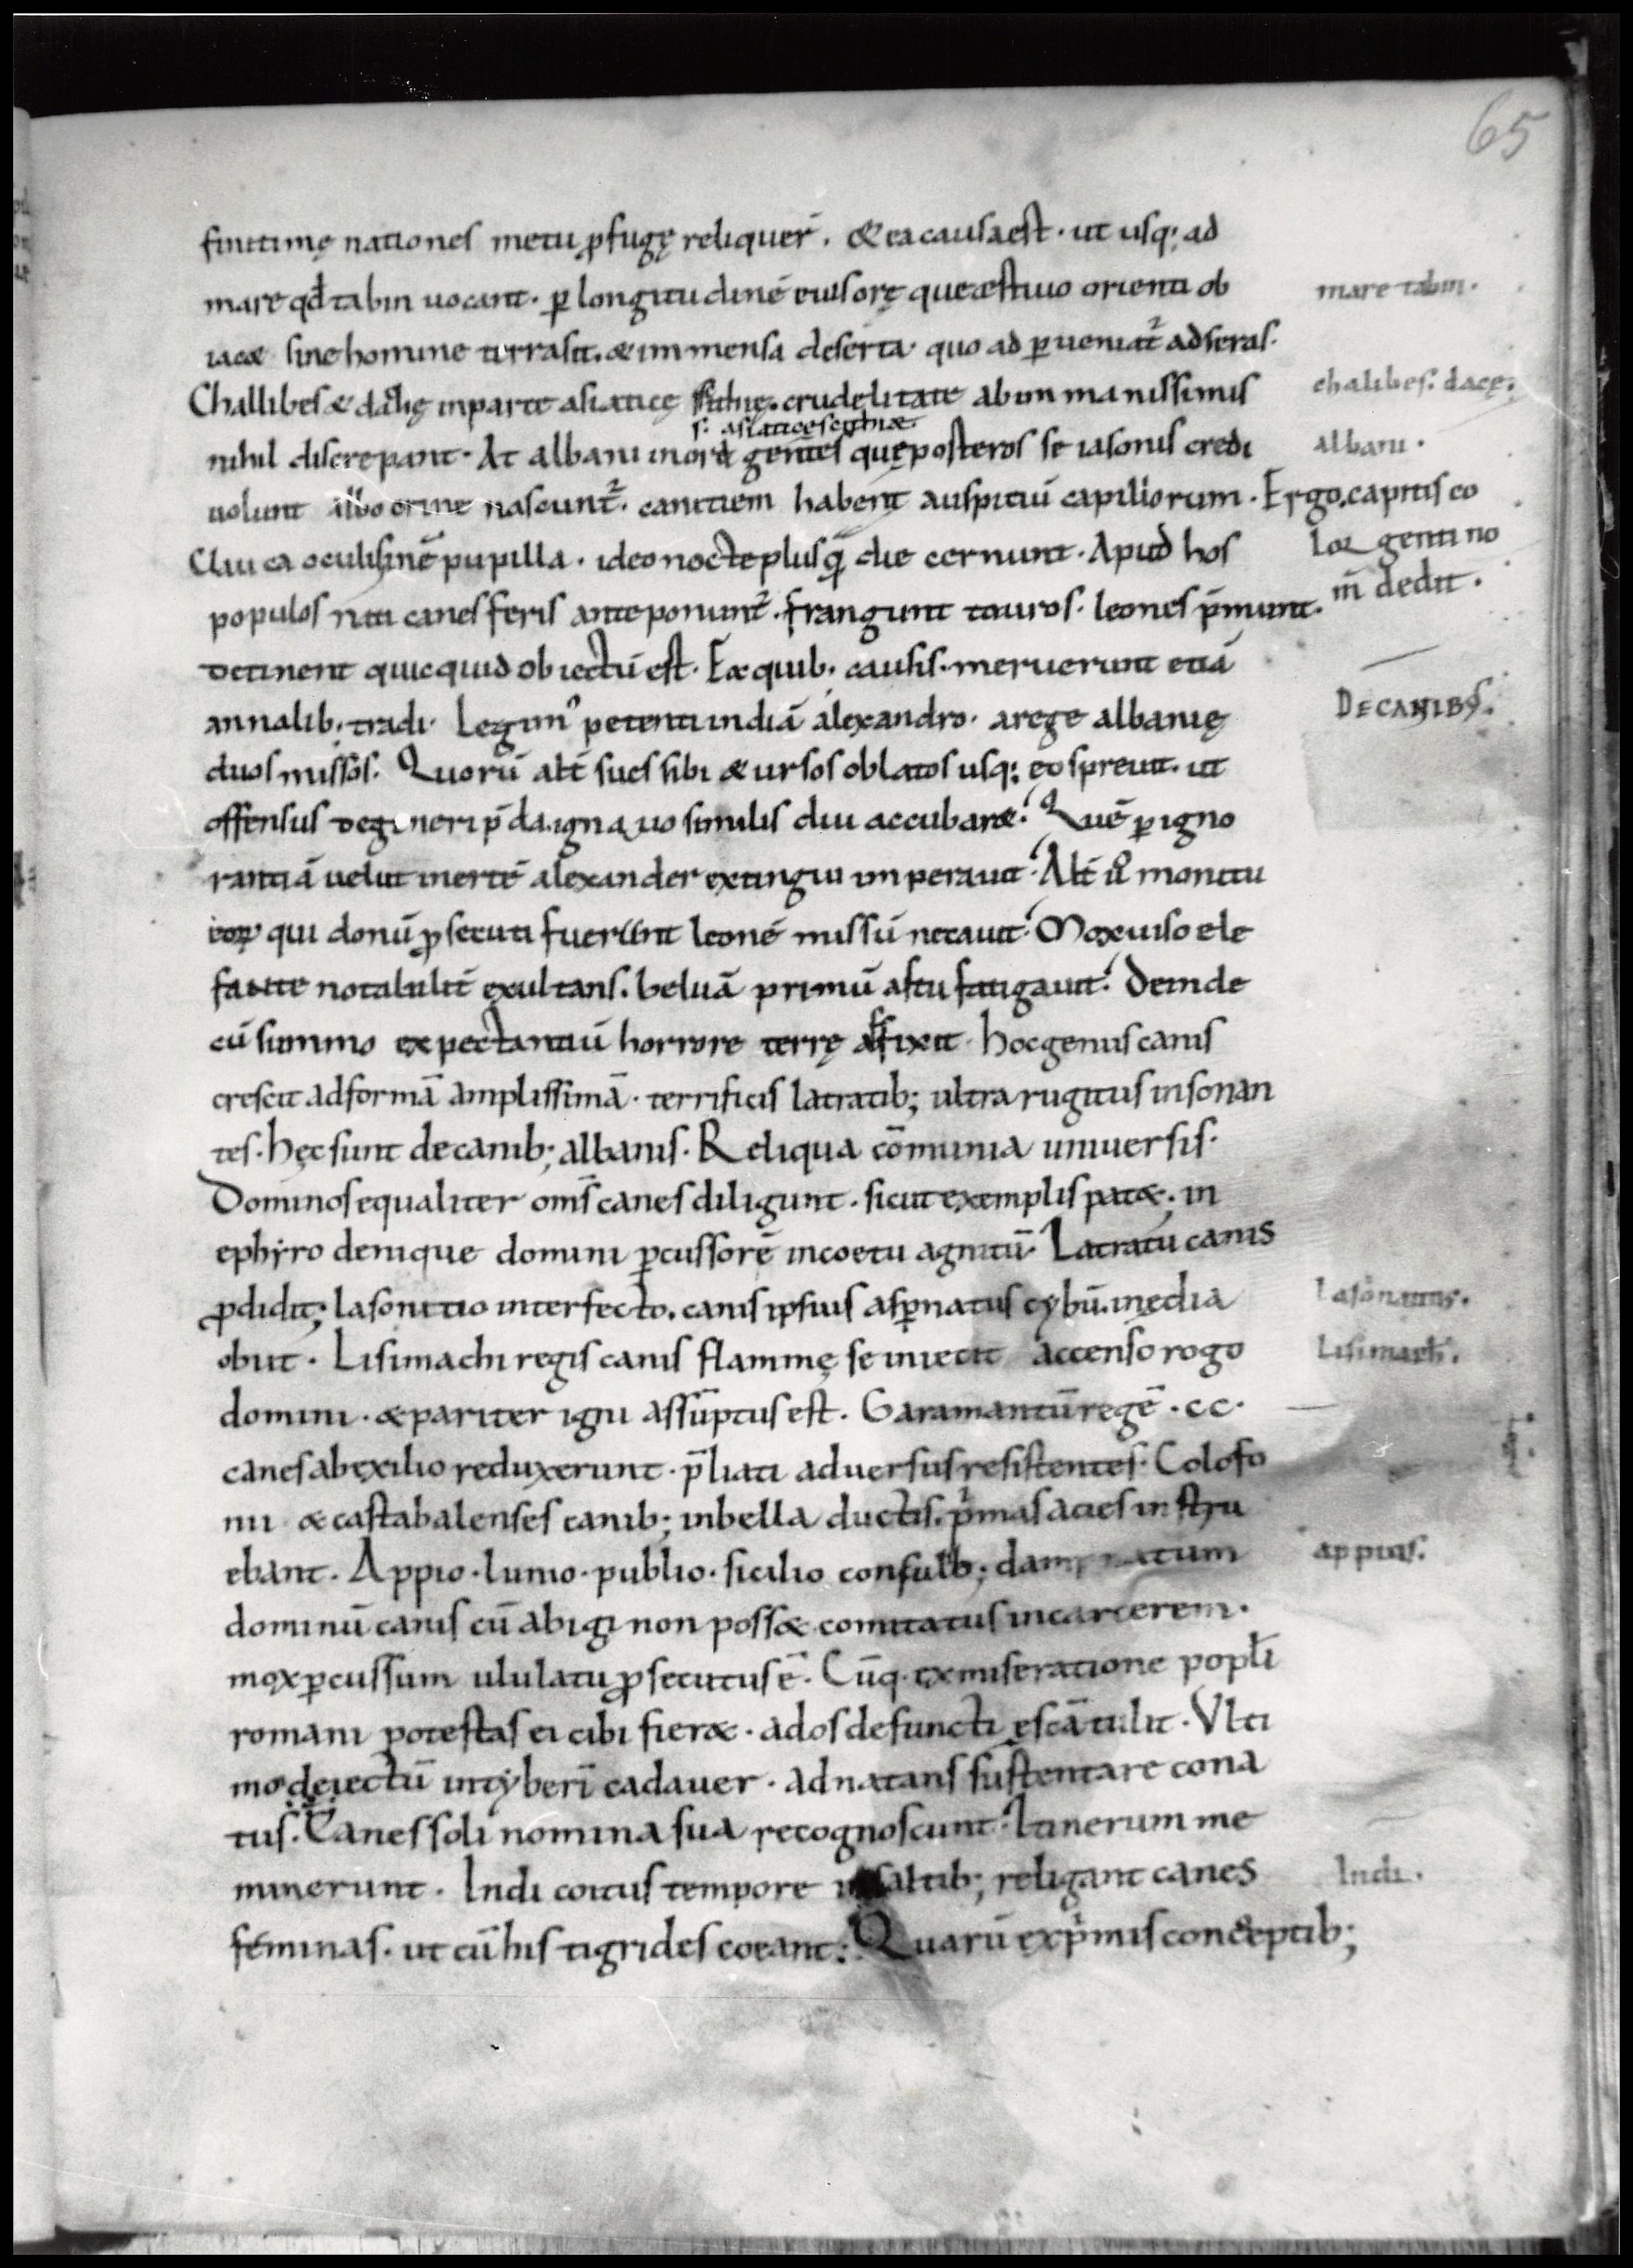 65
finitimę nationes metu ꝓfugę reliquer̄. & ea causa est · ut usq; ad
mare qd̄ tabin uocant · ꝑ longitudinē eius orę que æstiuo orienti ob
mare tabin.
iac& sine homine terra sit. & immensa deserta quo ad ꝑueniat᷑ ad seras·
Challibes & dahę in parte asiaticę crudelitate ab immanissimis
chalibes. dacę.
s. asiatice scithiæ
nihil discrepant · At albani in ora gentes quę posteros se iasonis credi
albani ·
uolunt albo crine nascunt᷑. canitiem habent auspitiū capillorum · Ergo. capitis co
Glauca oculis inē pupilla · ideo nocte plusquā die cernunt · Apud hos
loꝝ genti no
m̄ dedit ·
populos nati canes feris anteponunt᷑. frangunt tauros · leones p̄munt.
detinent quicquid obiectū est · Ex quib. causis · meruerunt etiā
annalib. tradi · Legim᷒ petenti indiā alexandro · a rege albanię
DE CANIBꝰ.
duos missos · Quorū alt̄ sues sibi & ursos oblatos usq; eo spreuit. ut
offensus degeneri p̄da. ignauo similis diu accubar&. Quē ꝑ igno
rantiā uelut inertē alexander extingui imperauit · Alt̄ monitu
eoꝝ qui donū ꝓsecuti fuerunt leonē missū necauit · Mox uiso ele
fante notabilit̄ exultans. beluā primū astu fatigauit. Deinde
cū summo expectantiū horrore terrę afixit · hoc genus canis
crescit ad formā amplissimā · terrificis latratib; ultra rugitus insonan
tes · hęc sunt de canib; albanis · Reliqua cōmunia uniuersis·
Dominos equaliter om̄s canes diligunt · sicut exemplis pat&; in
ephyro denique domini ꝑcussorē in coetu agnitū · Latratu canis
ꝓdidit; Iasonitio interfecto. canis ipsius asꝑnatus cybū. inedia
Iasonitius.
obiit · Lisimachi regis canis flammę se iniecit accenso rogo
Lisimach.
domini · & pariter igni assūptus est · Garamantū regē · cc ·
canes ab exilio reduxerunt · p̄liati aduersus resistentes · Colofo
nii & castabalenses canib; in bella ductis. p̄mas acies instru
ebant · Appio · Iunio · publio · sicilio consulib; dampnatum
appius.
dominū canis cū abigi non poss& comitatus in carcerem ·
mox ꝑcussum ululatu ꝓsecutus ē · Cūq. ex miseratione popli
romani potestas ei cibi fier& · ad os defuncti escā tulit · Vlti
mo deiectū in tyberī cadauer · adnatans sustentare cona
tus. Canes soli nomina sua recognoscunt · Itinerum me
minerunt · Indi coitus tempore in saltib; religant canes
Indi.
feminas · ut cū his tigrides coeant; Quarū ex p̄mis conceptib;